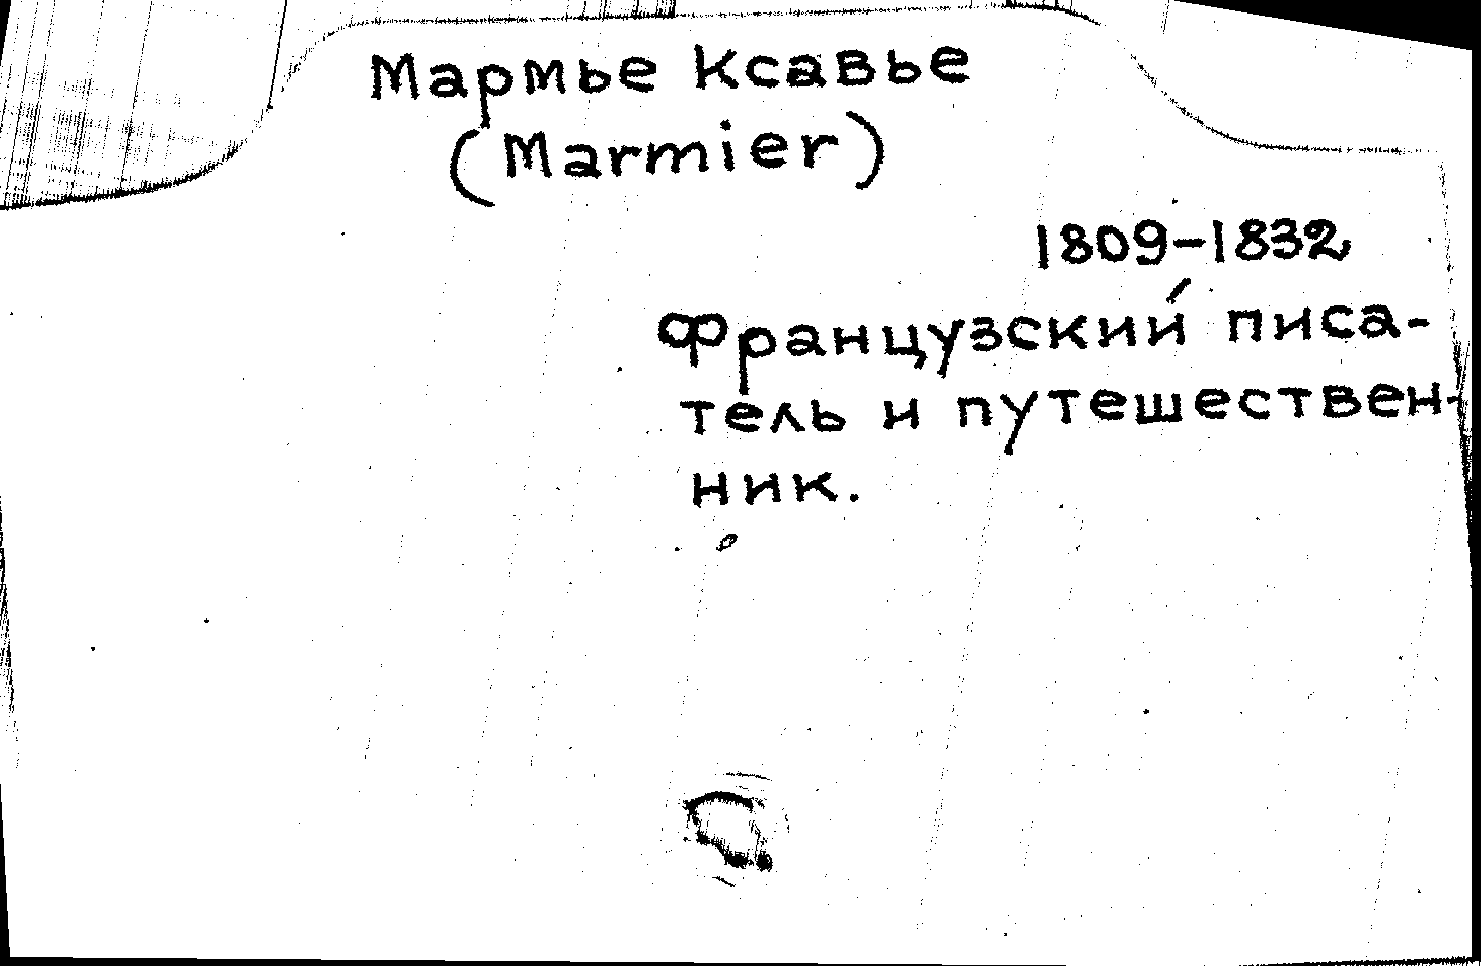 Мармье Ксавье
(Marmier)
1809-1832
Французский писа-
тель и путешествен-
ник.